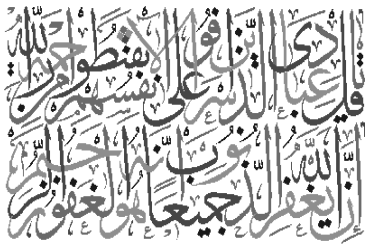 قل يا عبادي الذين أسرفوا على أنفسهم لا تقنطوا من رحمة الله
إن الله يغفر الذنوب جميعا إنه هو الغفور الرحيم